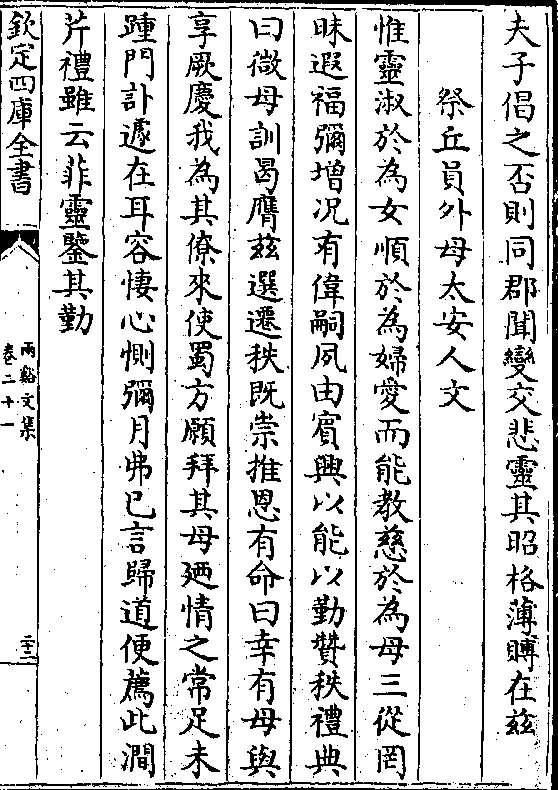 夫子倡之否則同郡聞變交悲靈其昭格薄賻在兹
祭丘員外母太安人文
惟靈淑於為女順於為婦愛而能教慈於為母三從罔
昧遐福彌增况有偉嗣夙由賓興以能以勤贊秩禮典
曰微母訓曷膺兹選遷秩既崇推恩有命曰幸有母與
享厥慶我為其僚來使蜀方願拜其母廼情之常足未
踵門訃遽在耳容悽心惻彌月弗已言歸道便薦此澗
芹禮雖云菲靈鑒其勤
欽定四庫全書
兩谿文集
卷二十一
二十二